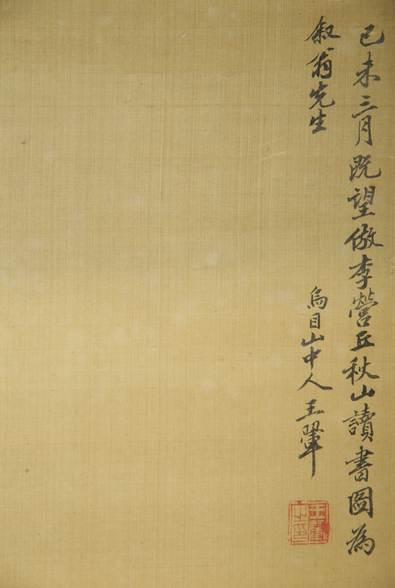 己未三月既望倣李營丘秋山讀書圖為
叙翁先生
烏目山中人王翬
王翬之印